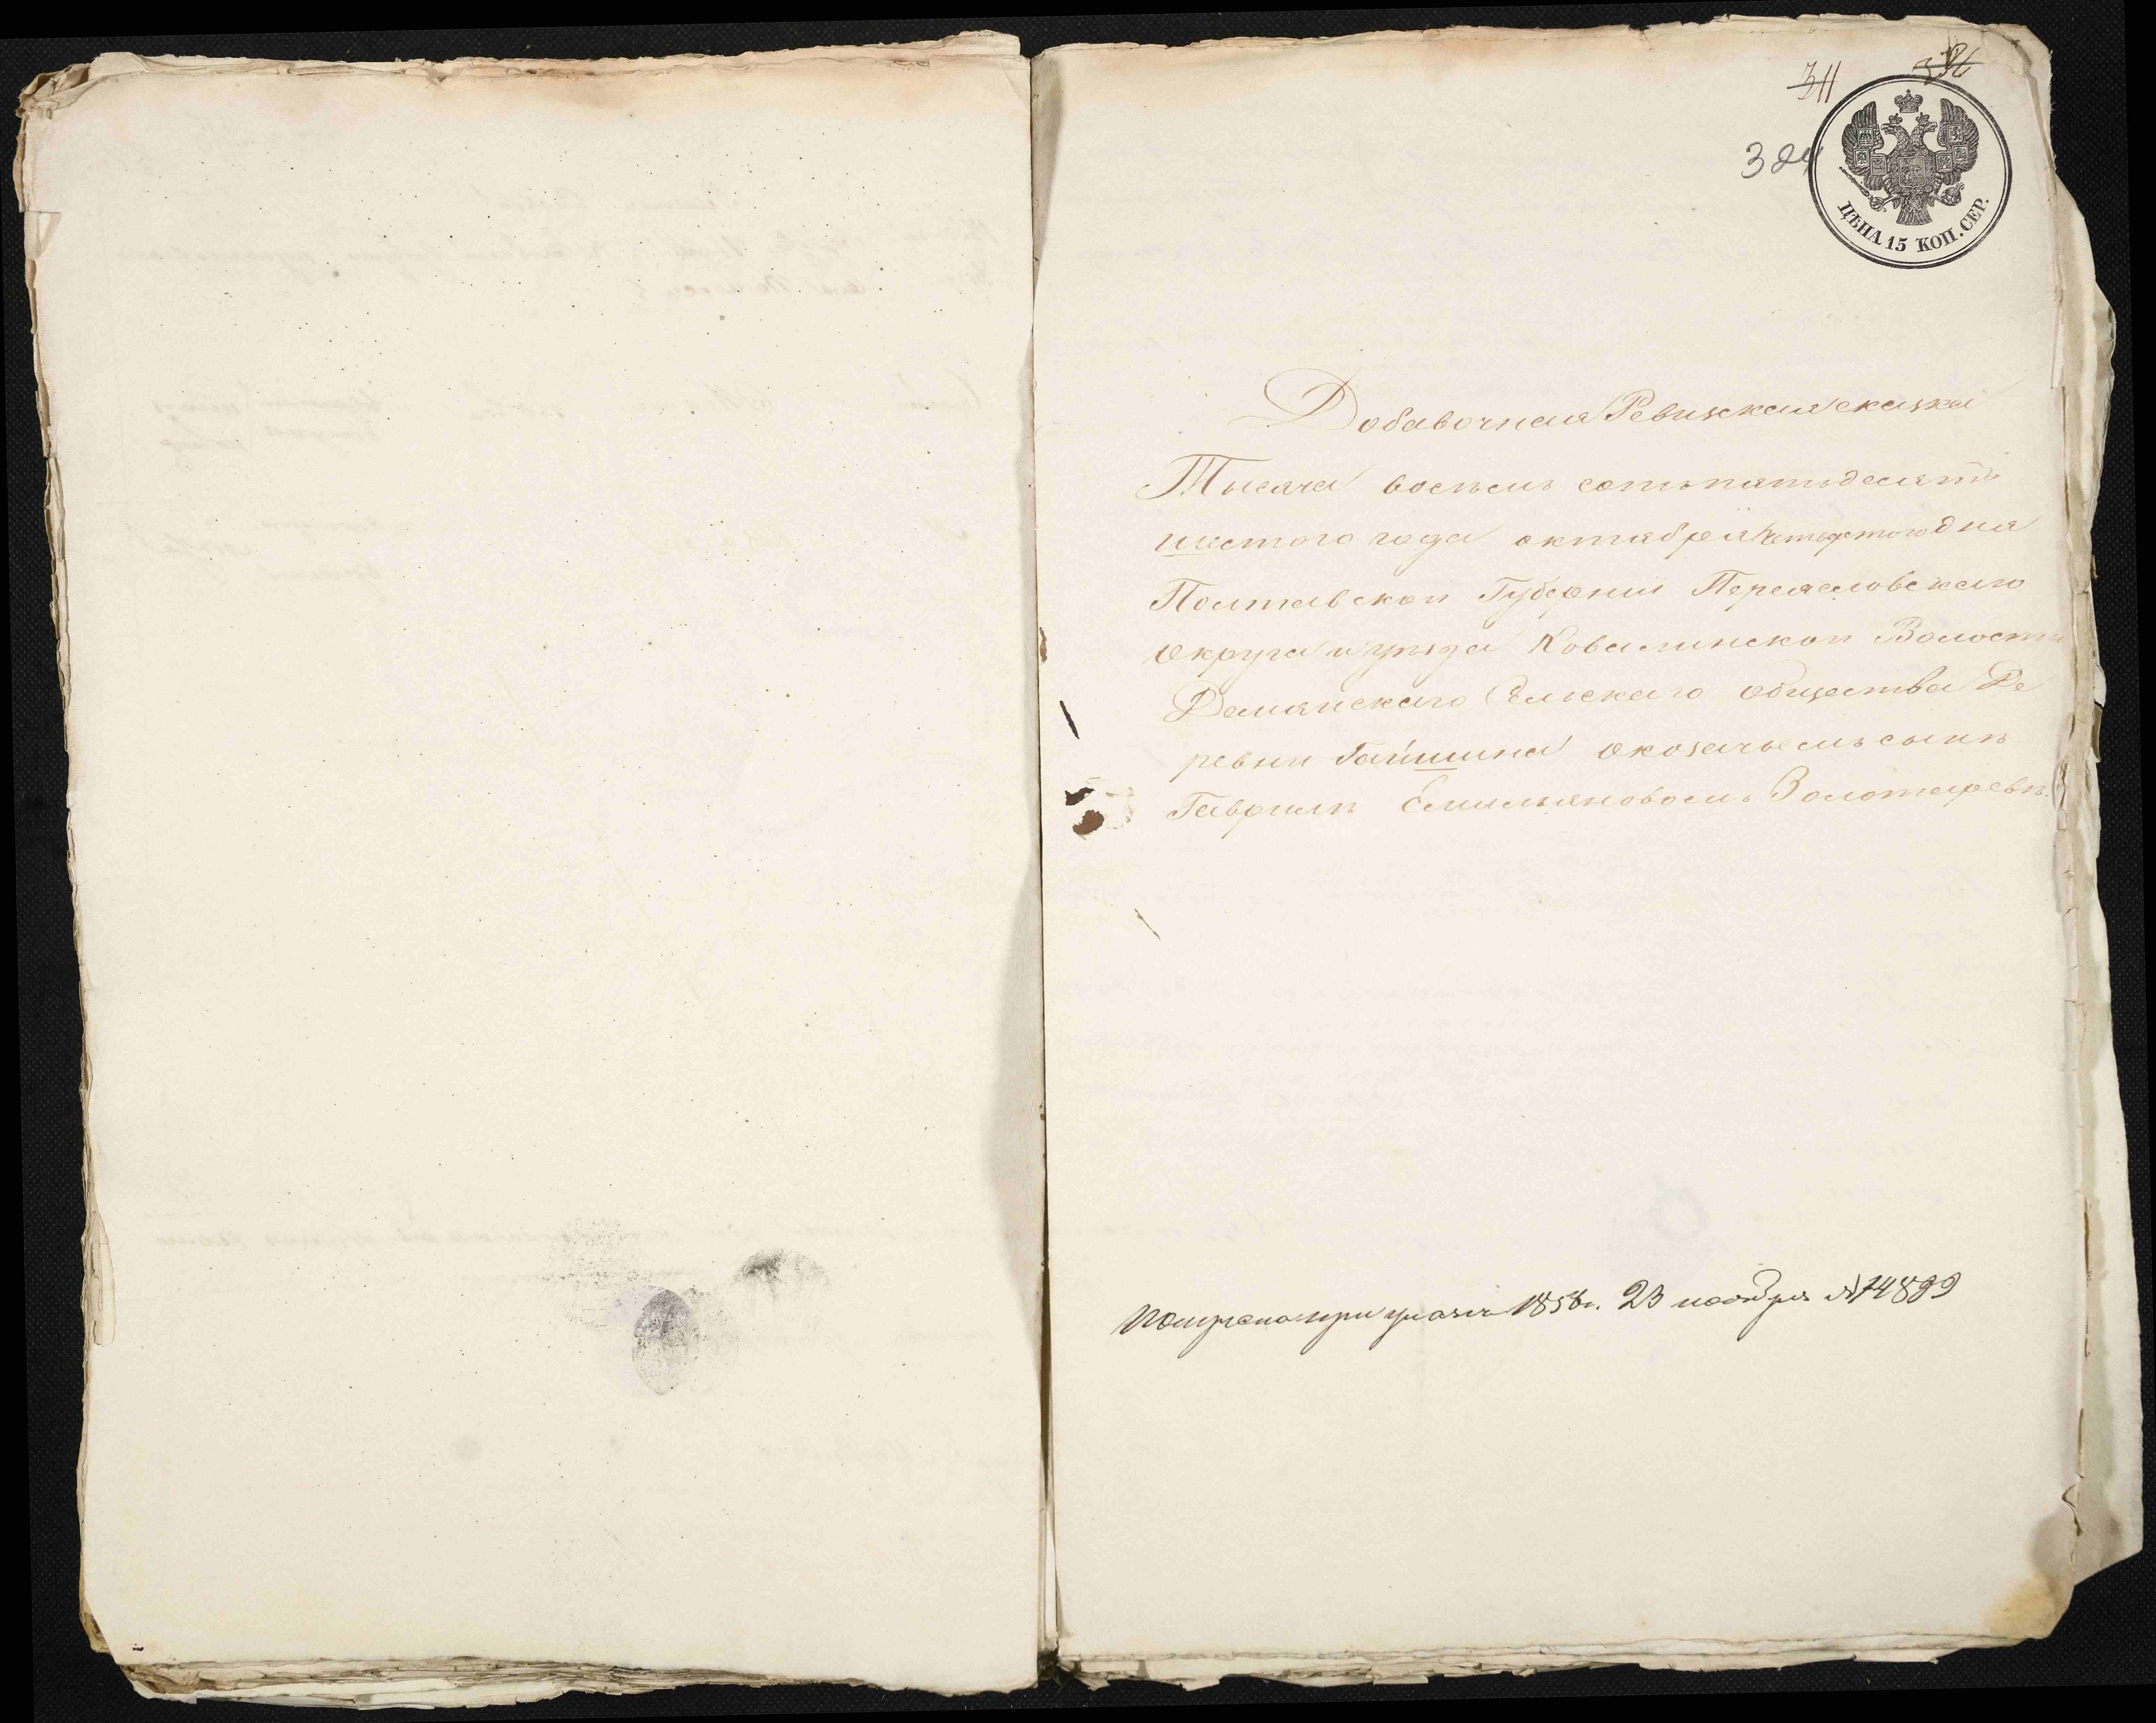 311
384
ЦѢНА 15 КОП. СЕР.
Добавочная Ревизская сказка
Тысяча восемь сотъ пятьдесятъ
шестого года октября дня
Полтавской Губернии Переясловского
округа и уезда Ковалинской Волости
Демянского Сельского общества Де
ревни Гайшина о козачьемъ сынѣ
Гаврилѣ Емильяновомъ Золотаревѣ.
при указѣ 1856 г. 23 ноября №14899